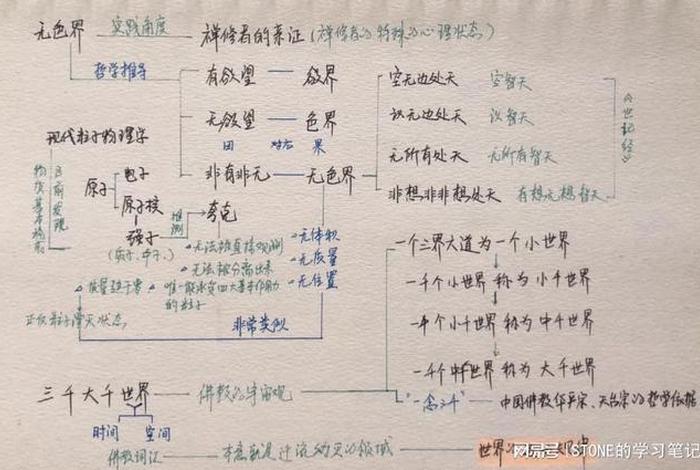 无色界 实践角度 禅修者的亲证（禅修者的特殊的心理状态）
哲学推导
有欲望 — 欲界
无欲望 — 色界
因 对应 果
非有非无 — 无色界
空无边处天 空智天
识无边处天 识智天
无所有处天 无所有智天
非想非非想处天 有想无想智天
《世记经》
现代粒子物理学
物质基本构成
目前发现
原子
电子
原子核
强子
（质子、中子、）
推测
夸克
无法被直接观测
无法被分离出来
唯一能承受四大基本作用力
的粒子
质量趋于零
正反粒子湮灭状态
无体积
无质量
无位置
非常类似
一个三界大道为一个小世界
一千个小世界 称为 小千世界
一千个小千世界 称为 中千世界
一千个中千世界 称为 大千世界
三千大千世界 — 佛教的宇宙观
"一念三千" — 中国佛教华严宗、天台宗的哲学依据
时间 空间
佛教词汇 — 本意就是迁流的灵的领域 — 世界
搜狐号@(STONE的学习笔记